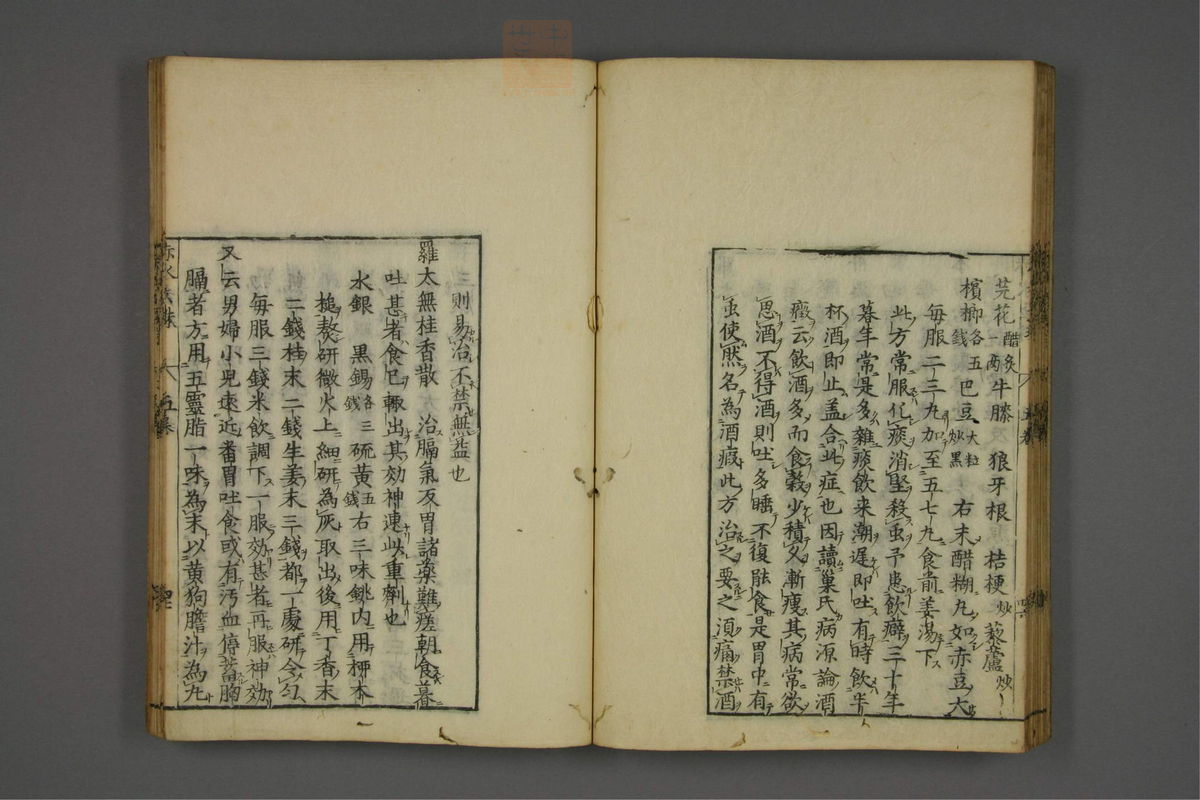 芫花醋炙一两牛膝狼牙根桔梗炒藜蘆炒
檳榔各五錢巴豆大粒炒黑右末醋糊丸如赤豆大
每服二三丸加至五七丸食前姜湯下
此方常服化痰消堅殺虫予患飲癖三十年
暮年常是多雜痰飲来潮遅即吐有時飲半
杯酒即止盖合此症也因讀巢氏病源論酒
癥云飲酒多而食穀少積久漸瘦其病常欲
思酒不得酒則吐多睡不復能食是胃中有
虫使然名為酒瘕此方治之要之須痛禁酒
三則易治不禁無益也
羅太無桂香散治膈氣反胃諸薬難瘥朝食暮
吐甚者食已輙出其効神速此重劑也
水銀黒錫各三錢硫黄五錢右三味銚内用栁木
槌熬研微火上細研為灰取出後用丁香末
二錢桂末二錢生姜末三錢都一處研令匀
每服三錢米飲調下一服効甚者再服神効
又云男婦小児遠近番胃吐食或有汚血停蓄胸
膈者方用五靈脂一味為末以黄狗膽汁為丸